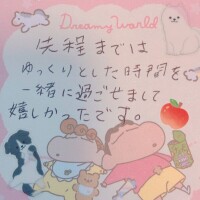 Dreamy World
先程までは
ゆっくりとした時間を
一緒に過ごせまして
嬉しかったです。